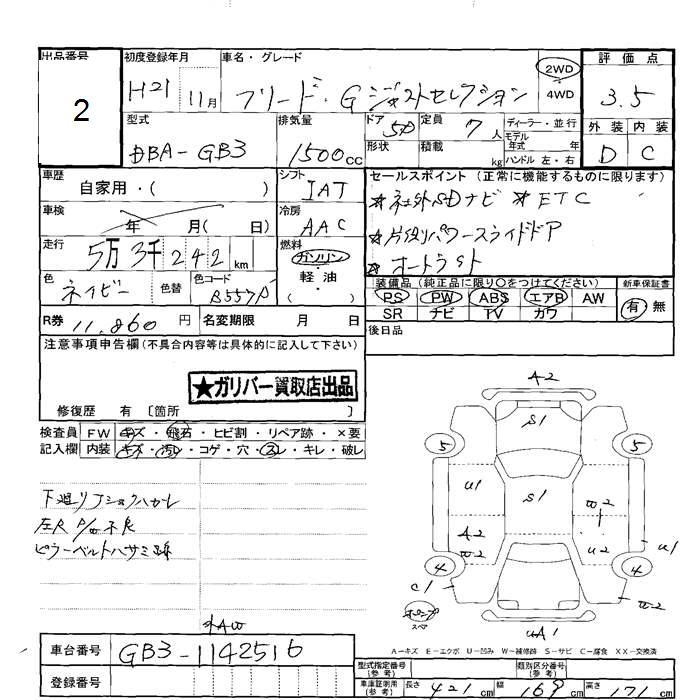 出品番号 初度登録年月 車名・グレード 評価点
2 H21 11月 フリード・Gジャストセレクション 2WD 4WD 3.5
型式 排気量 ドア 5D 定員 7人 ディーラー・並行 外装 内装
DBA-GB3 1500cc 形状 積載 kg モデル年式 年式 ハンドル 左・右 D C
車歴 シフト セールスポイント(正常に機能するものに限ります)
自家用・( ) IAT ★社外SDナビ ★ETC
車検 年 月( 日) 冷房 AAC ★片側パワースライドドア
走行 5万3千242km 燃料 ガソリン ★オートラスト
色 ネイビー 色替 色コード B557P 軽油 ( ) 装備品(純正品に限り○をつけてください) 新車保証書
PS PW ABS エアB AW 有 無
R券 11,860円 名変期限 月 日 SR ナビ TV カワ
注意事項申告欄(不具合内容等は具体的に記入して下さい) 後日品
★ガリバー買取店出品
修復歴 有 〔箇所 〕
検査員 FW キズ・飛石・ヒビ割・リペア跡・×要
記入欄 内装 キズ・汚レ・コゲ・穴・スレ・キレ・破レ
A2
S1
5 5
U1 S1 W2
A2 W2 U2 U1
4 4
C1 W2
UA1
下廻リ
左R P/W不良
ピラーベルトハサミ跡
スペア
A−キズ E−エクボ U−凹み W−補修跡 S−サビ C−腐食 XX−交換済
外AW
車台番号 GB3-1142516
登録番号
型式指定番号(参考) 類別区分番号(参考)
車庫証明用(参考) 長さ 421cm 幅 169cm 高さ 171cm